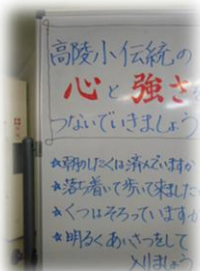 高陵小伝統の
心と強さを
つないでいきましょう
☆朝のしたくは済んでいますか
☆落ち着いて歩いて来ましたか
☆くつはそろっていますか
☆明るくあいさつをして
入りましょう